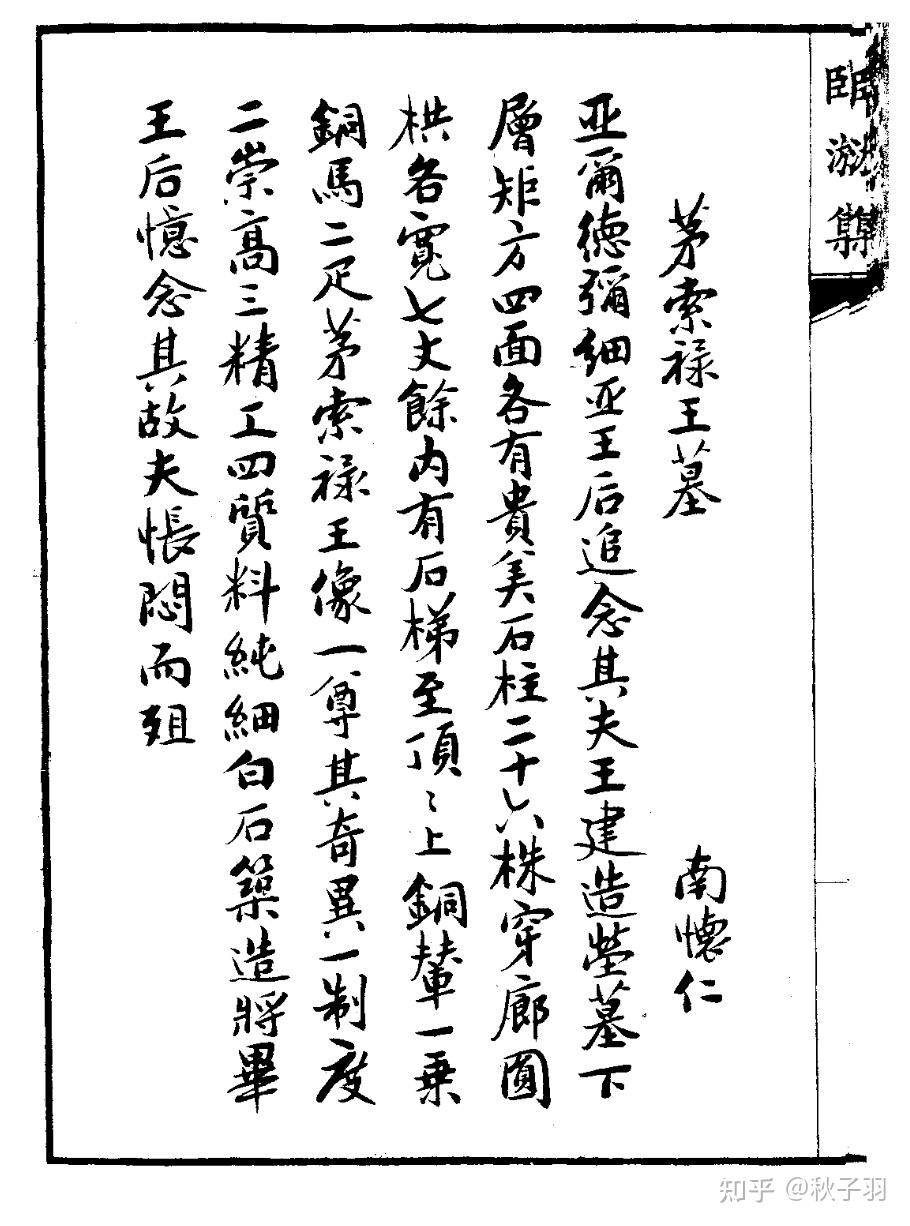 集
茅索禄王墓
南懷仁
亚爾德彌細亚王后追念其夫王建造塋墓下
層矩方四面各有貴美石柱二十六株穿廊圓
栱各寬七丈餘内有石梯至頂〻上銅輦一乗
銅馬二疋茅索禄王像一尊其奇異一制度
二崇高三精工四質料純細白石築造將畢
王后憶念其故夫悵悶而殂
知乎 @秋子羽